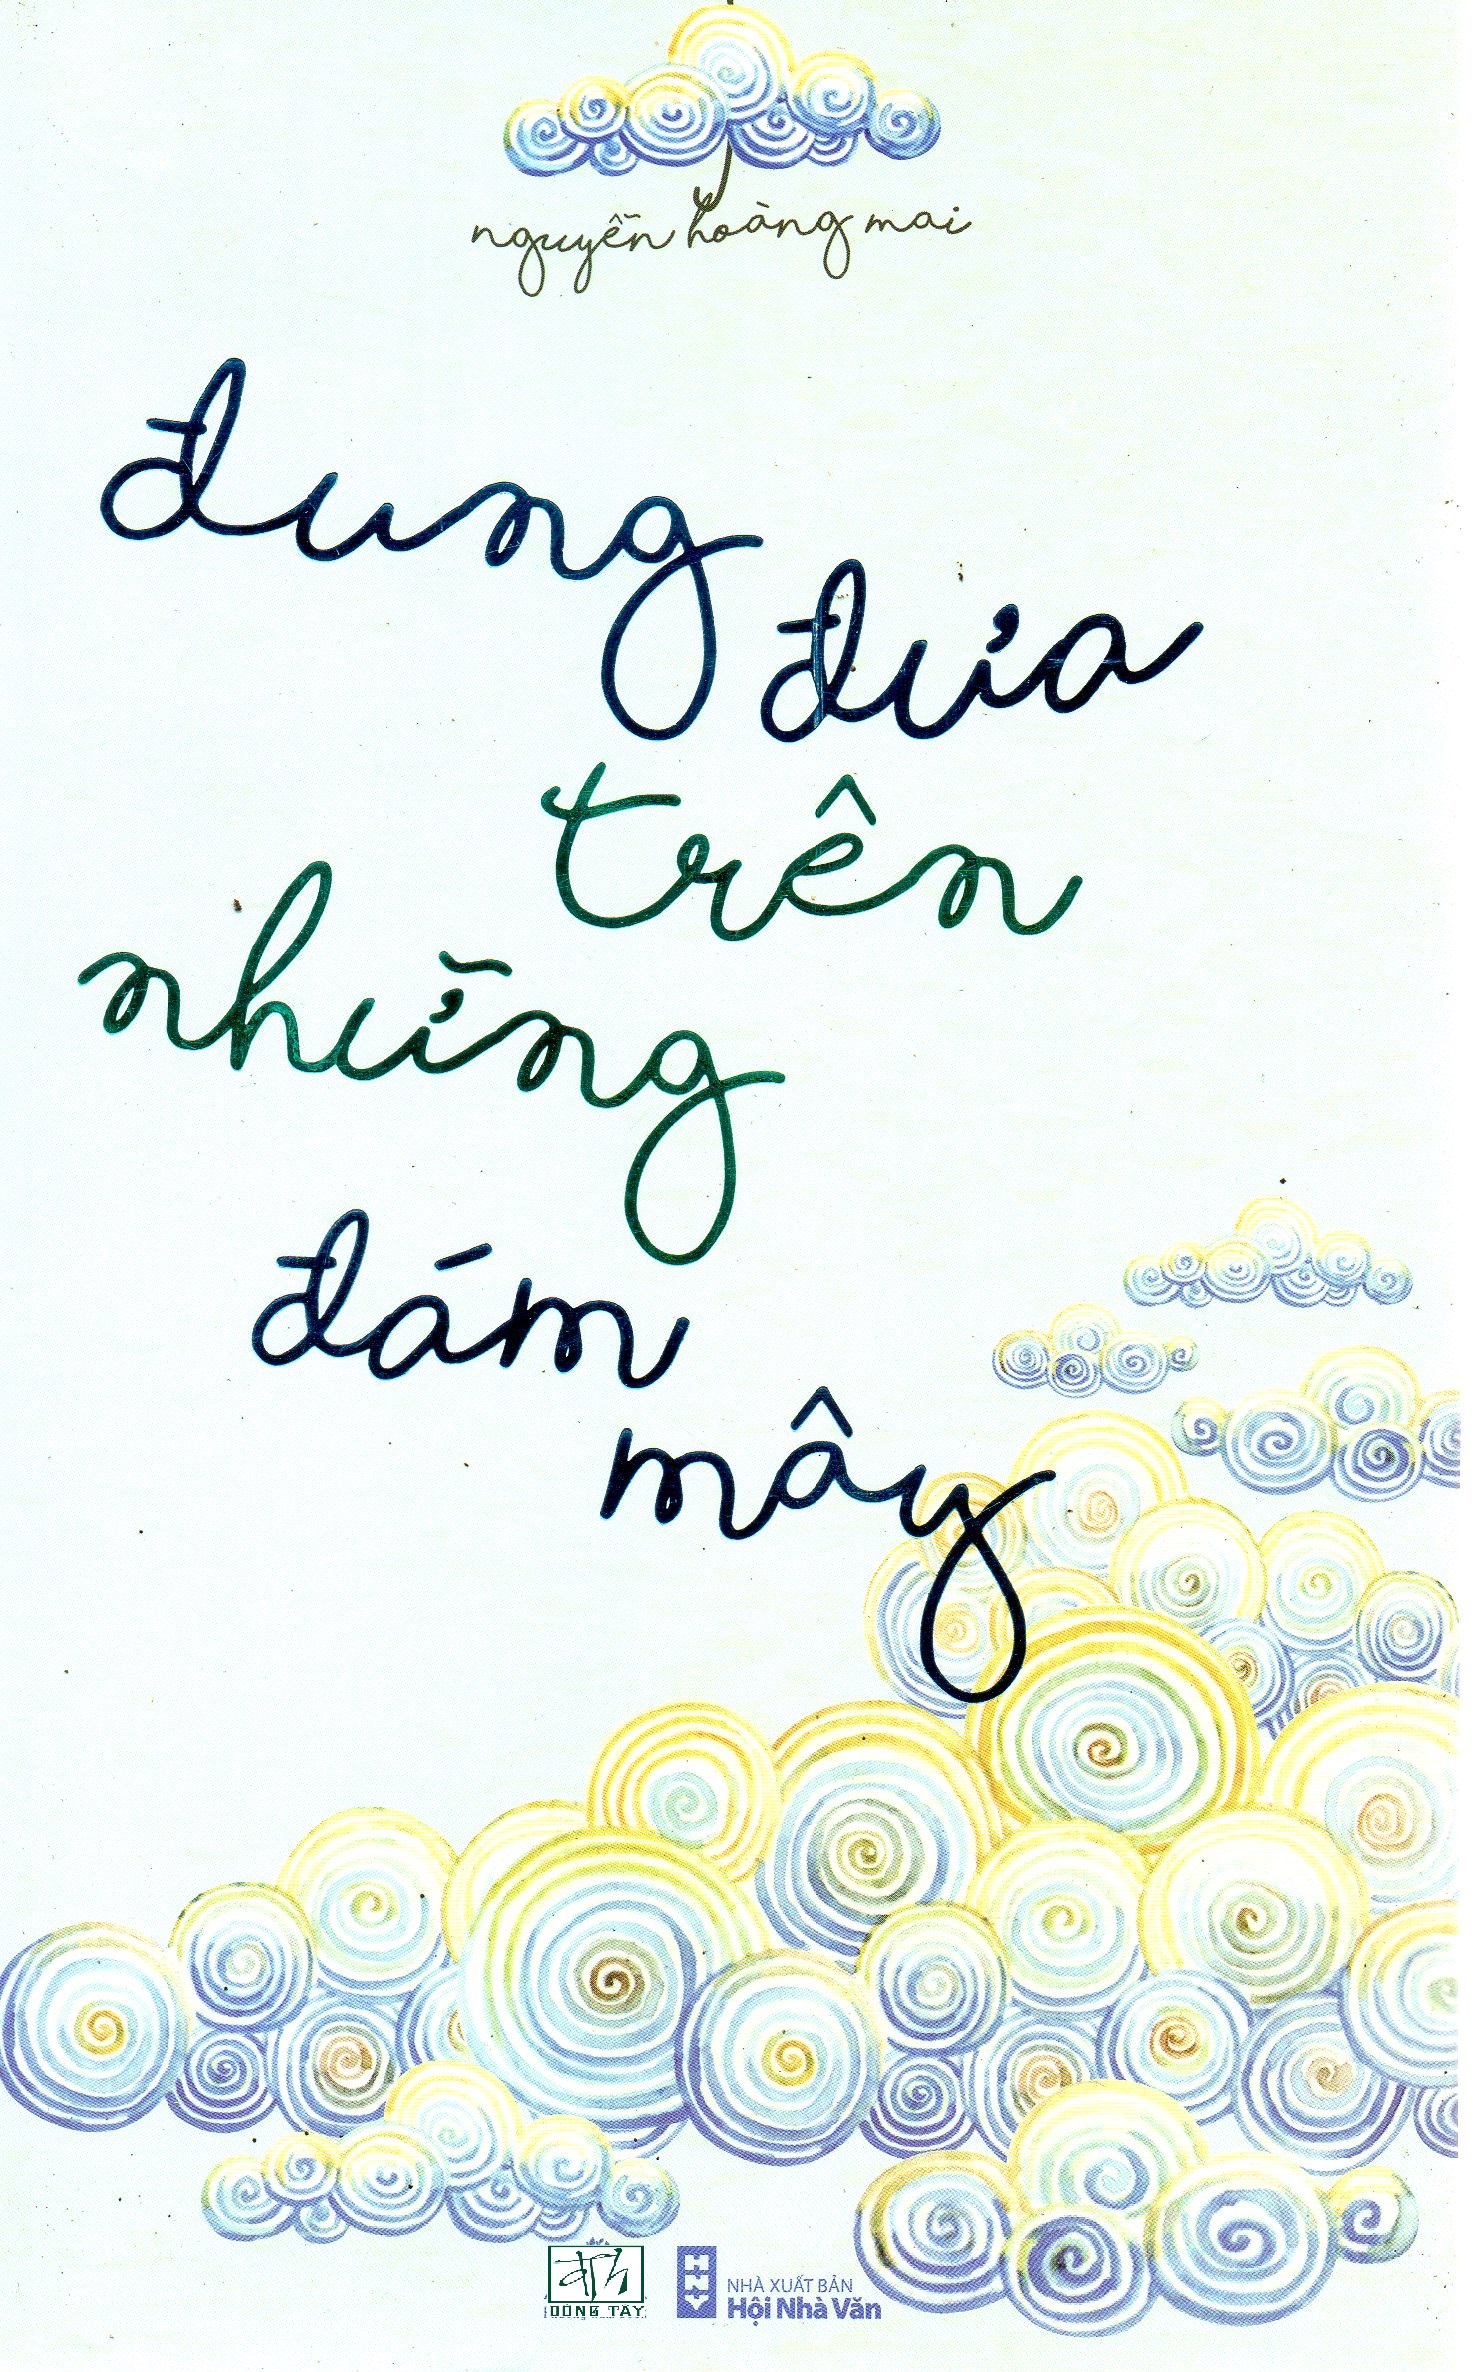 nguyễn hoàng mai
đung
đưa
trên
những
đám
mây
ĐÔNG TÂY
HNV
NHÀ XUẤT BẢN
Hội Nhà Văn